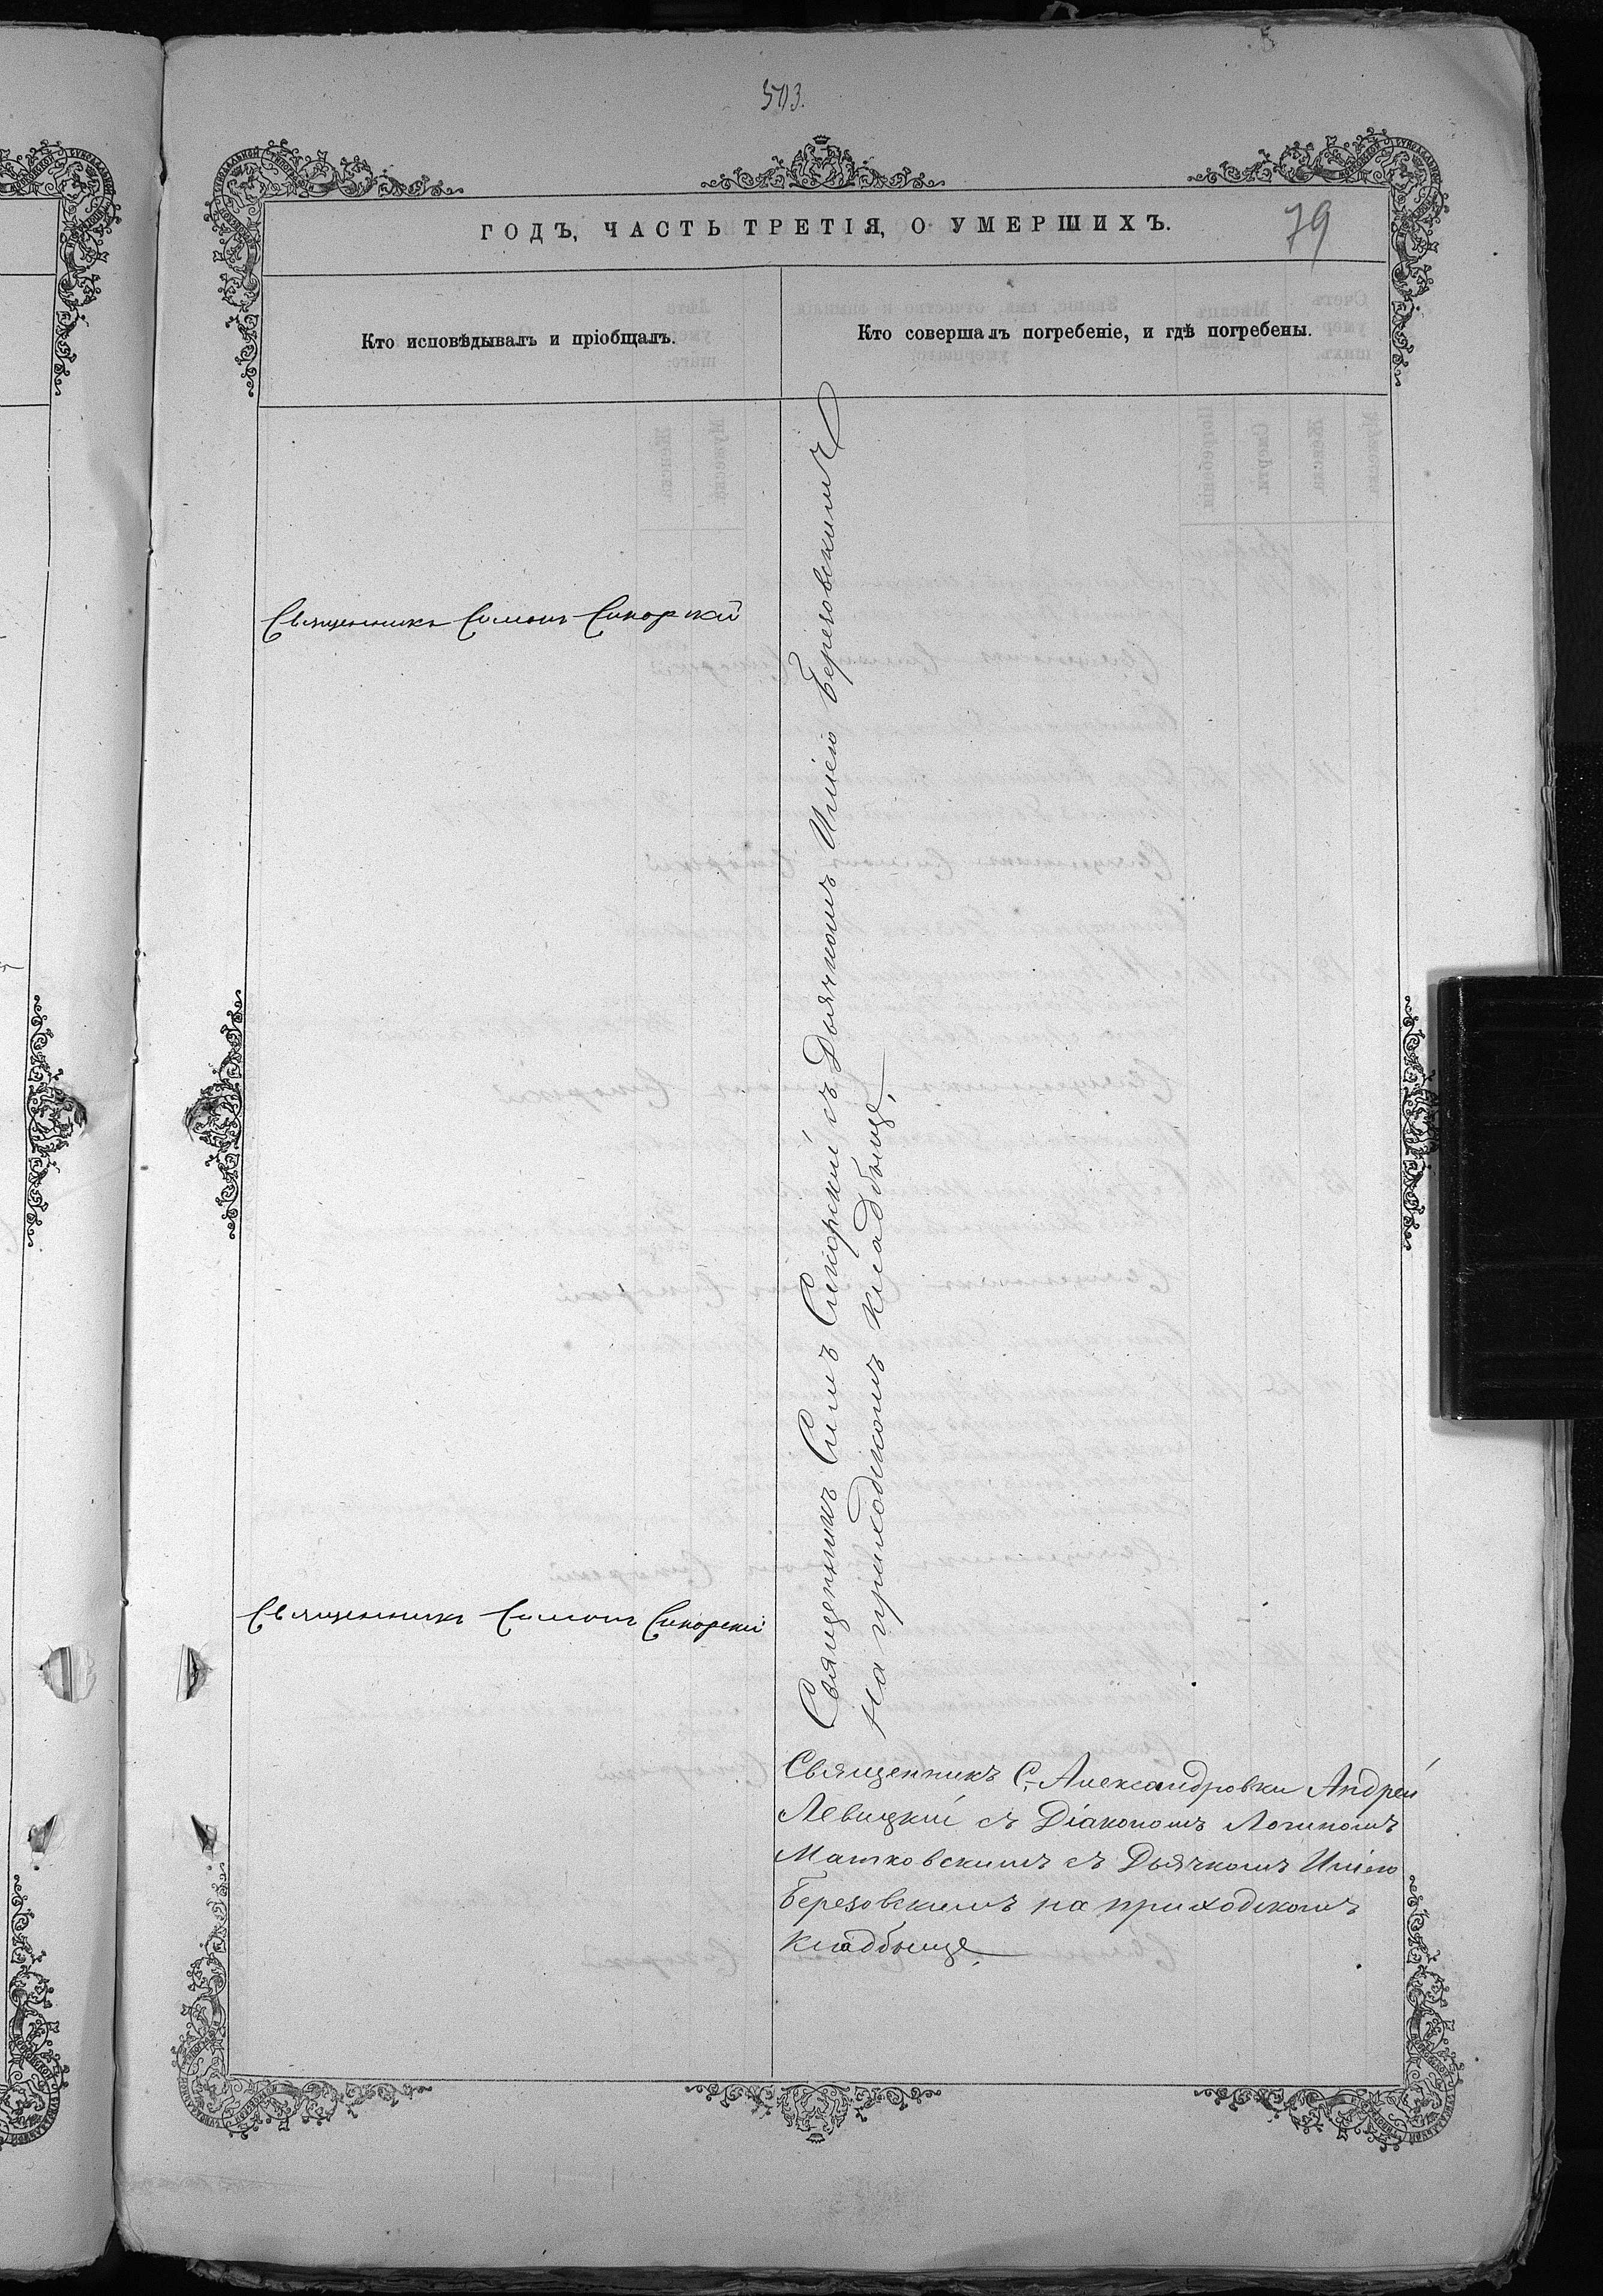 503.
ГОДЪ, ЧАСТЬ ТРЕТІЯ, О УМЕРШИХЪ.
79
Кто исповѣдывалъ и пріобщалъ.
Кто совершалъ погребеніе, и гдѣ погребены.
Священникъ Симонъ Сикорскій
Священникъ Симонъ Сикорскій
Священникъ Сим Сикорскій съ Дьячкомъ Иліею Березовскимъ
на приходскомъ кладбыще,
Священникъ С. Александровки Андрей
Левицкій съ Діакономъ Логиномъ
Матковскимъ съ Дьячкомъ Иліею
Березовскимъ на приходскомъ
кладбыще,